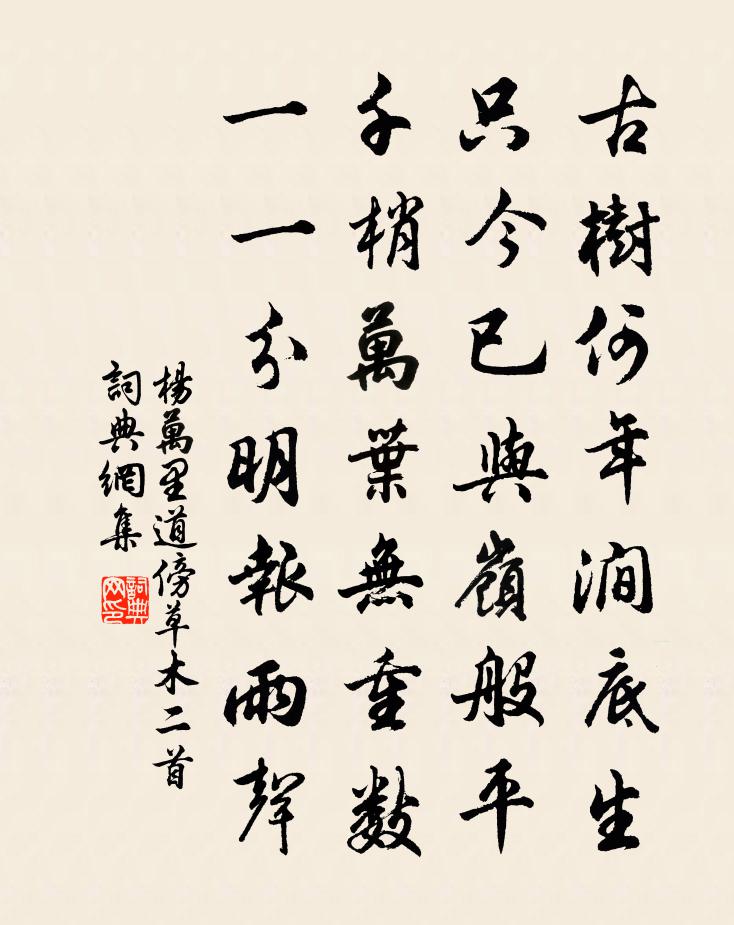 古樹何年澗底生
只今已與嶺般平
千梢萬葉無重數
一一分明報雨聲
楊萬里道傍草木二首
詞典網集
詞典網印